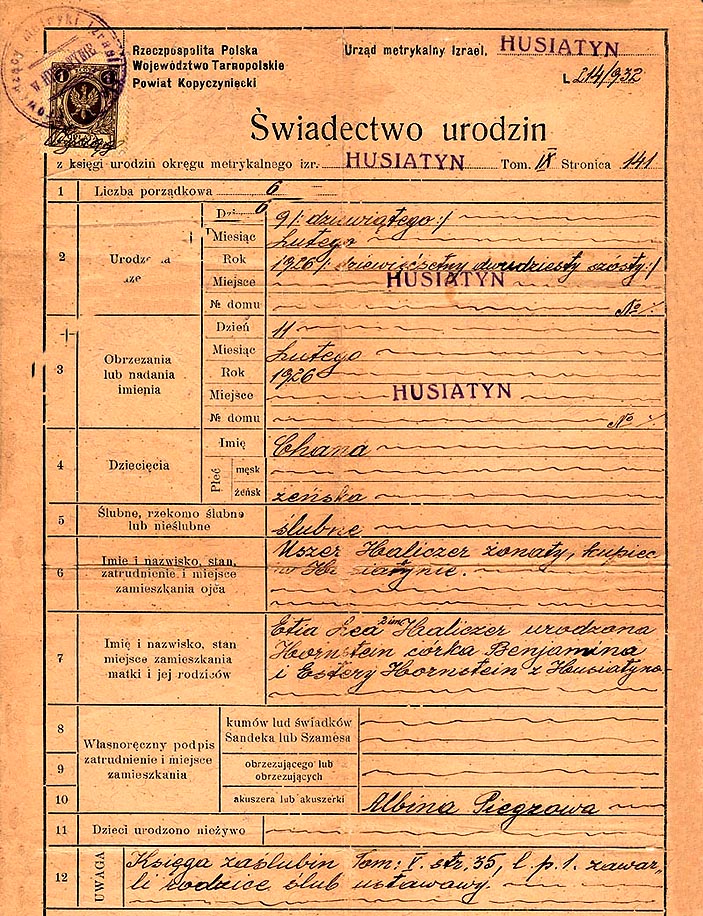 Rzeczpospolita Polska
Województwo Tarnopolskie
Powiat Kopyczyniecki
Urząd metrykalny Izrael. HUSIATYN
L 214/932
Świadectwo urodzin
z księgi urodzin okręgu metrykalnego izr. HUSIATYN Tom. IX Stronica 141
1 Liczba porządkowa 6
2
6
9 /: dziewiątego :/
Miesiąc Lutego
Rok 1926 /: dziewięćsetny dwudziesty szósty :/
Miejsce HUSIATYN
№ domu № /.
3 Obrzezania lub nadania imienia
Dzień 11
Miesiąc Lutego
Rok 1926
Miejsce HUSIATYN
№ domu № /.
4 Dziecięcia
Imię Chana
Płeć
męsk
żeńsk żeńska
5 Ślubne, rzekomo ślubne lub nieślubne
ślubne
6 Imie i nazwisko, stan, zatrudnienie i miejsce zamieszkania ojca
Uszer Haliczer żonaty, kupiec
7 Imię i nazwisko, stan miejsce zamieszkania matki i jej rodziców
Etia Lea 2 im Haliczer urodzona
Hornstein córka Benjamina
i Estery Hornstein z Husiatyna
Własnoręczny podpis zatrudnienie i miejsce zamieszkania
8 kumów lud świadków Sandeka lub Szamesa
9 obrzezującego lub obrzezujących
10 akuszera lub akuszerki Albina
11 Dzieci urodzono nieżywo
12 UWAGA
Księga zaślubin Tom: V. str. 35, l. p. 1. zawar-
li rodzice ślub ustawowy.